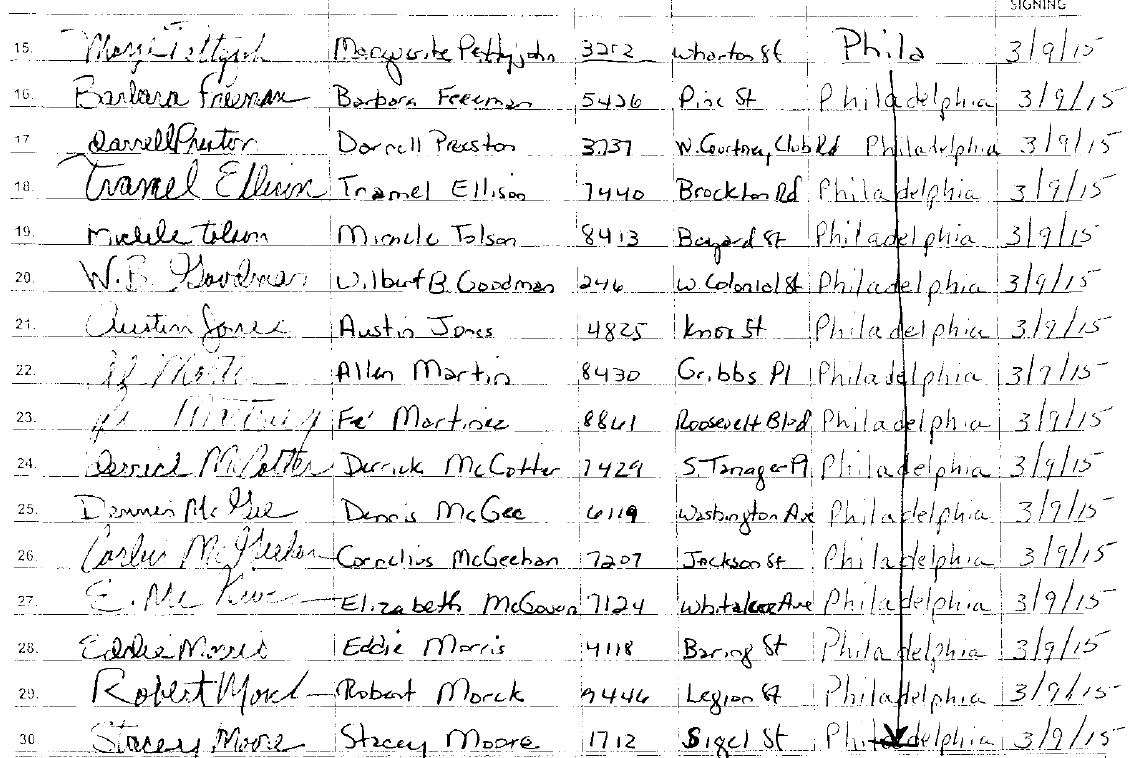 SIGNING
15. Marguerite Pettyjohn 3212 Wharton St Phila 3/9/15
16. Barbara Freeman Barbara Freeman 5426 Pine St Philadelphia 3/9/15
17. Darrell Preston Darrell Preston 3737 W. Courtney Club Rd Philadelphia 3/9/15
18. Tramel Ellison Tramel Ellison 7440 Brockton Rd Philadelphia 3/9/15
19. Michele Tolson Michele Tolson 8413 Bayard St Philadelphia 3/9/15
20. W.B. Goodman Wilbert B. Goodman 246 W. Colonial St Philadelphia 3/9/15
21. Austin Jones Austin Jones 4825 Knox St Philadelphia 3/9/15
22. Allen Martin 8430 Gribbs Pl Philadelphia 3/9/15
23. Fe' Martinez 8861 Roosevelt Blvd Philadelphia 3/9/15
24. Derrick McCotter Derrick McCotter 7429 S. Tanager Pl Philadelphia 3/9/15
25. Dennis McGee Dennis McGee 6119 Washington Ave Philadelphia 3/9/15
26. Cornelius McGeehan 7207 Jackson St Philadelphia 3/9/15
27. Elizabeth McGovern 7124 Whitaker Ave Philadelphia 3/9/15
28. Eddie Morris Eddie Morris 4118 Baring St Philadelphia 3/9/15
29. Robert Morck Robert Morck 9446 Legion St Philadelphia 3/9/15
30 Stacey Moore Stacey Moore 1712 Sigel St Philadelphia 3/9/15